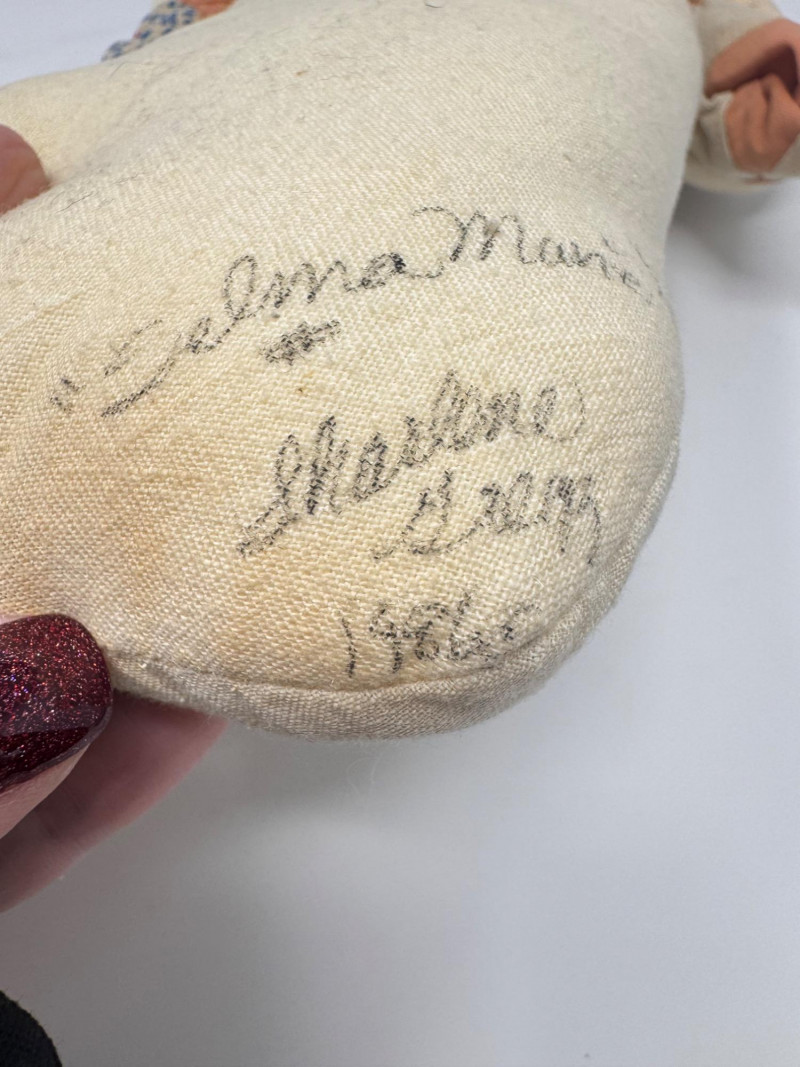 "Selma Marie"
Sharlene
Gregg
1986